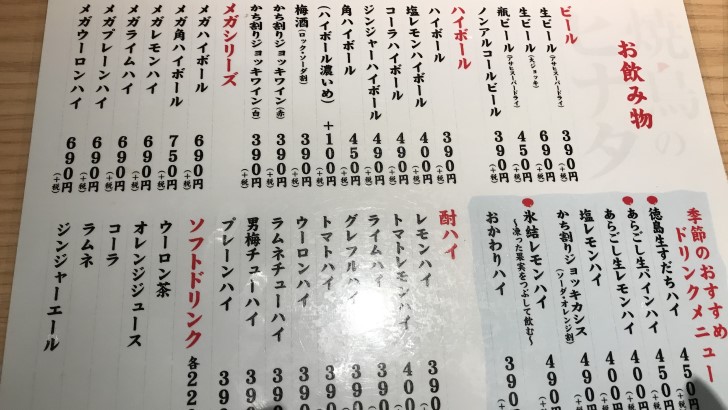 お飲み物
ビール
生ビール(アサヒスーパードライ) 390円(+税)
生ビール(大ジョッキ) 690円(+税)
瓶ビール(アサヒスーパードライ) 450円(+税)
ノンアルコールビール 390円(+税)
ハイボール
ハイボール 390円(+税)
塩レモンハイボール 400円(+税)
コーラハイボール 490円(+税)
ジンジャーハイボール 490円(+税)
角ハイボール 450円(+税)
(ハイボール濃いめ) +100円(+税)
梅酒(ロック・ソーダ割) 390円(+税)
かち割りジョッキワイン(赤) 390円(+税)
かち割りジョッキワイン(白) 390円(+税)
メガシリーズ
メガハイボール 690円(+税)
メガ角ハイボール 750円(+税)
メガレモンハイ 690円(+税)
メガライムハイ 690円(+税)
メガプレーンハイ 690円(+税)
メガウーロンハイ 690円(+税)
季節のおすすめ
ドリンクメニュー
徳島生すだちハイ 450円(+税)
あらごし生パインハイ 450円(+税)
あらごし生レモンハイ 400円(+税)
塩レモンハイ 400円(+税)
かち割りジョッキカシス(ソーダ・オレンジ割) 490円(+税)
氷結レモンハイ 490
〜凍った果実をつぶして飲む〜
おかわりハイ 390
酎ハイ
レモンハイ 390
トマトレモンハイ 400
ライムハイ 390
グレフルハイ 390
トマトハイ 390
ウーロンハイ 390
ラムネチューハイ 390
男梅チューハイ 390
プレーンハイ 390
ソフトドリンク 各220
ウーロン茶
オレンジジュース
コーラ
ラムネ
ジンジャーエール